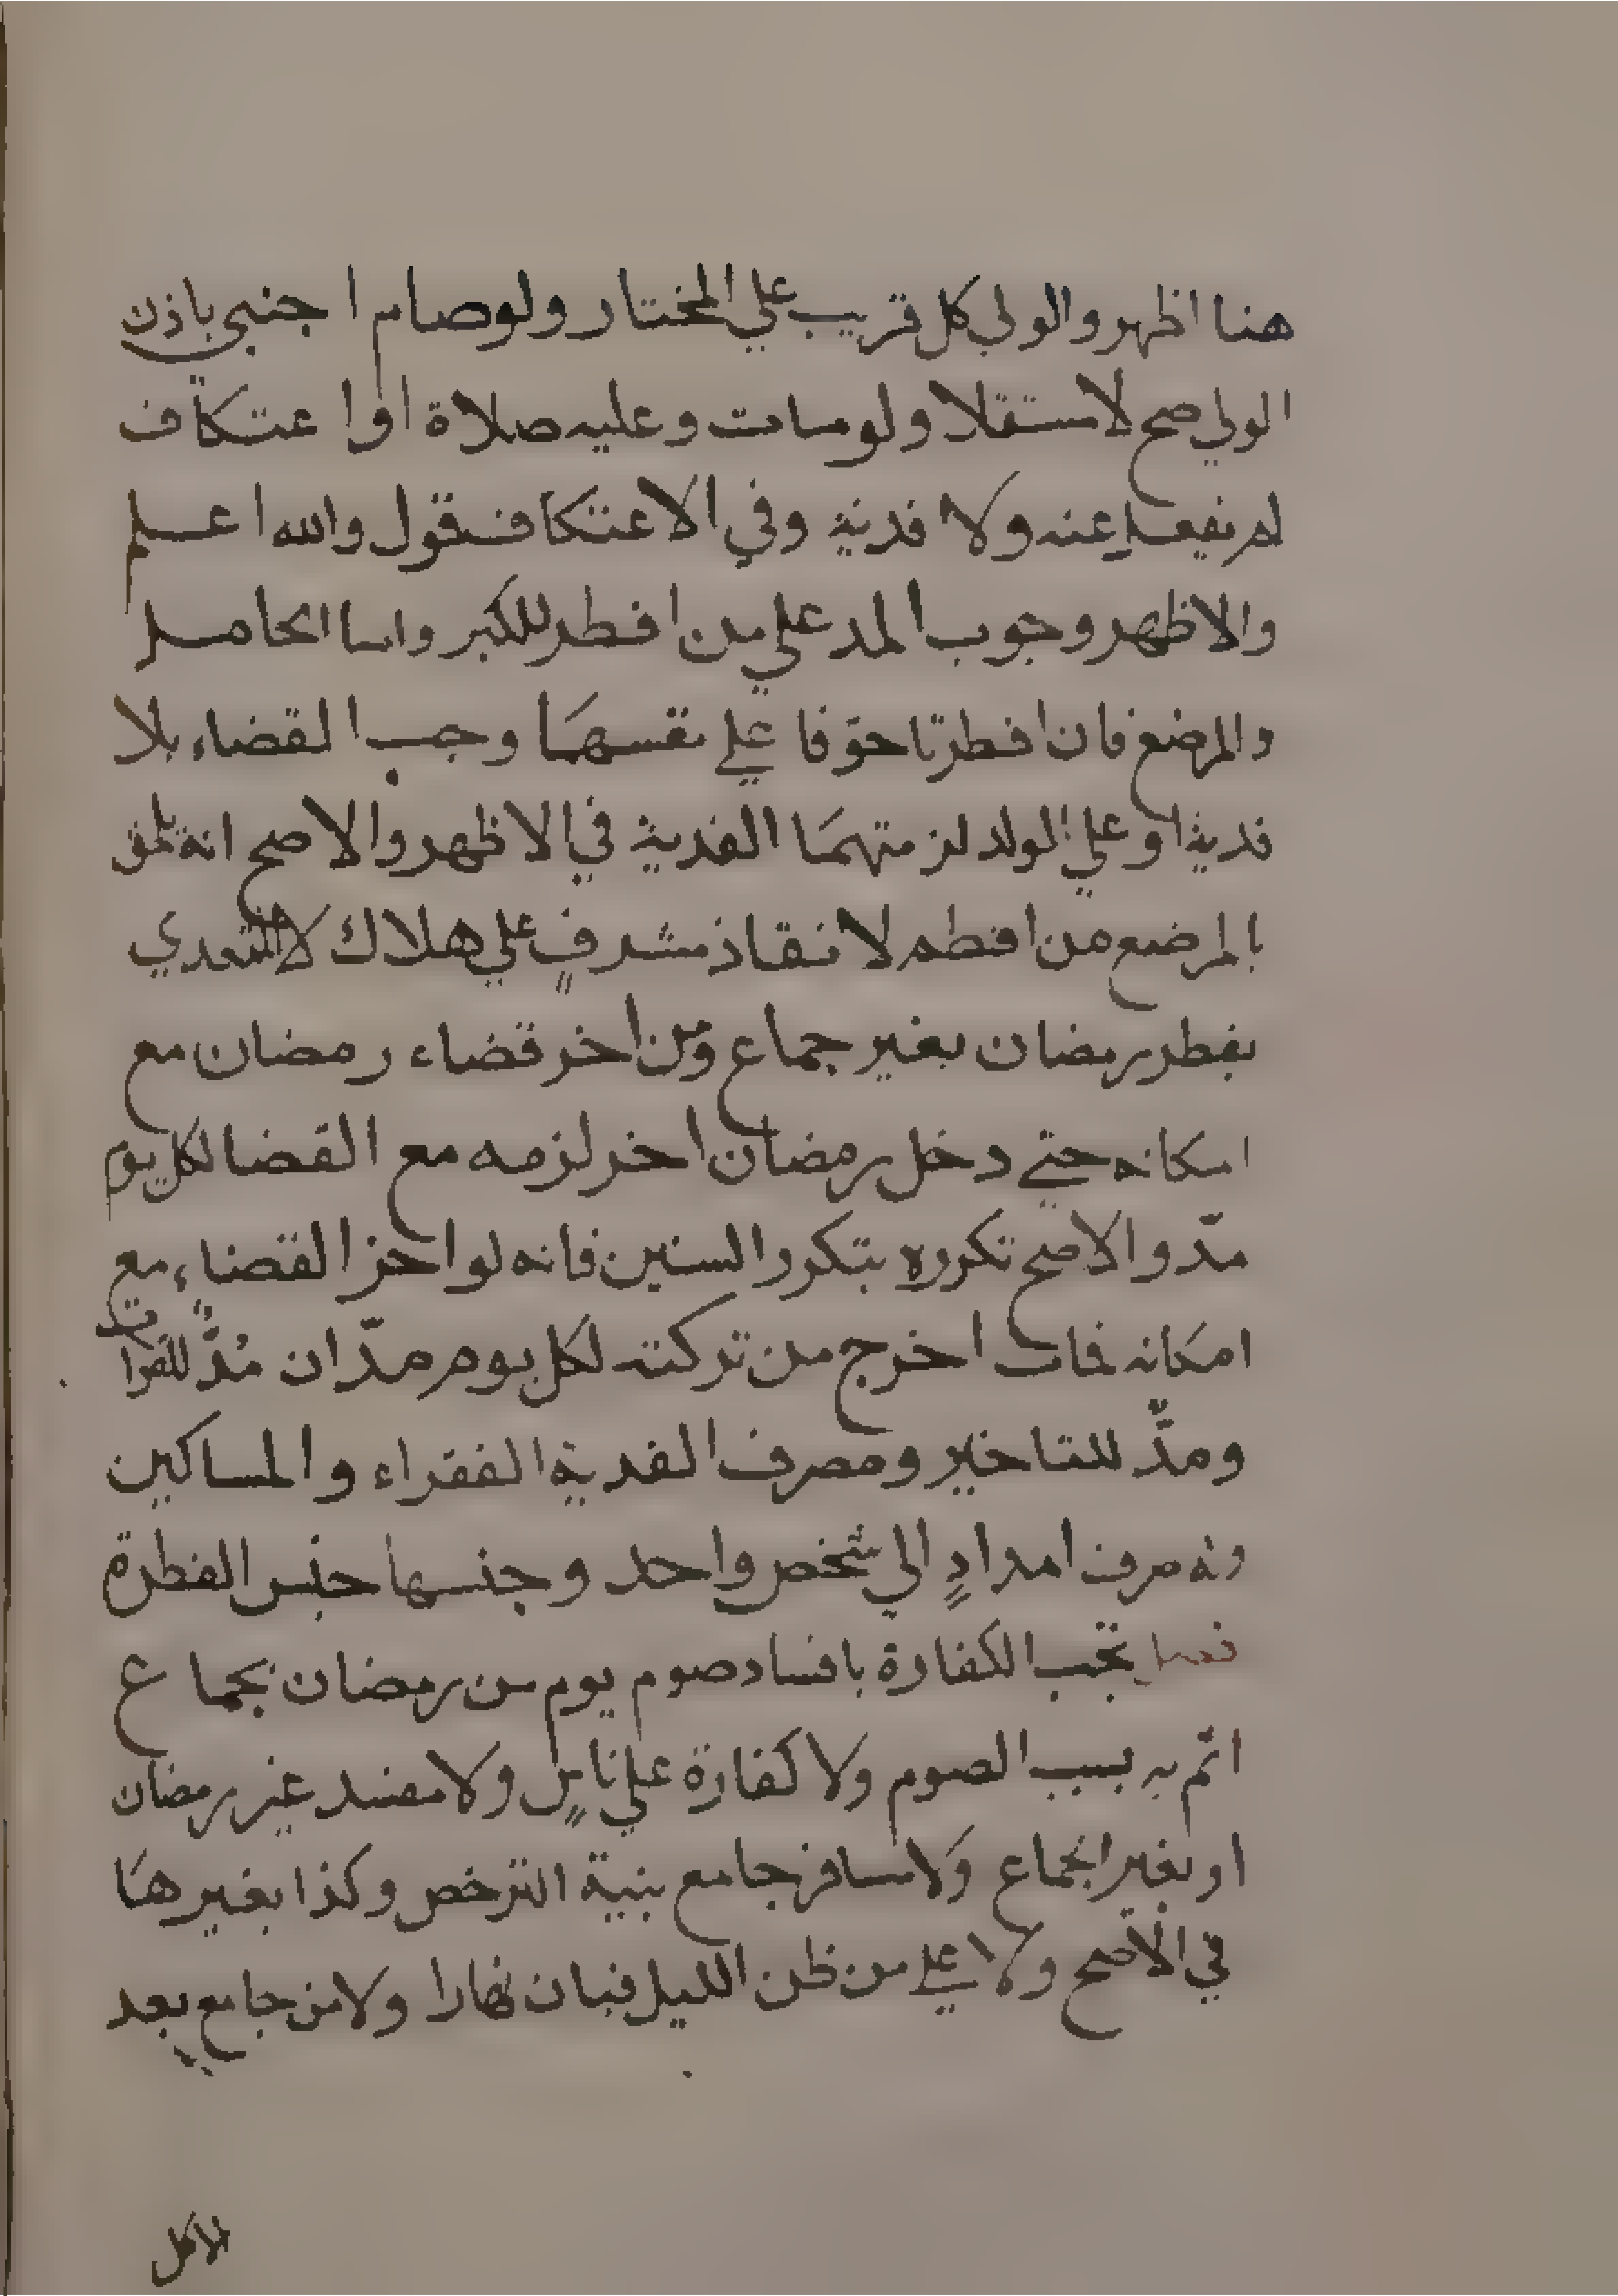 هنا اظهر والولي كل قريب علي المختار ولو صام اجنبي باذن
الولي صح لا مستقلا ولو مات وعليه صلاة او اعتكاف
لم يفعل عنه ولا فدية وفي الاعتكاف قول والله اعلم
والاظهر وجوب المد علي من افطر للكبر واما الحامل
والمرضع فان افطرتا خوفا علي نفسها وجب القضاء بلا
فدية او علي الولد لزمتهما الفدية في الاظهر والاصح انه يلحق
بالمرضع من افطر لانقاذ مشرفٍ علي هلاك لا المتعدي
بفطر رمضان بغير جماع ومن اخر قضاء رمضان مع
امكانه حتي دخل رمضان اخر لزمه مع القضا لكل يوم
مدّ والاصح تكرره بتكرر السنين فانه لو اخر القضاء مع
امكانه فمات اخرج من تركته لكل يوم مدّان مُدٌّ للفوات
ومدٌّ للتاخير ومصرف الفدية الفقراء والمساكين
وله صرف امدادٍ الي شخص واحد وجنسها جنس الفطرة
فصل تجب الكفارة بافساد صوم يوم من رمضان بجماع
اثم به بسبب الصوم ولا كفارة علي ناسٍ ولا مفسد غير رمضان
او بغير الجماع ولا مسافر جامع بنية الترخص وكذا بغيرها
في الاصح ولا علي من ظن الليل فبان نهارا ولا من جامع بعد
الاكل